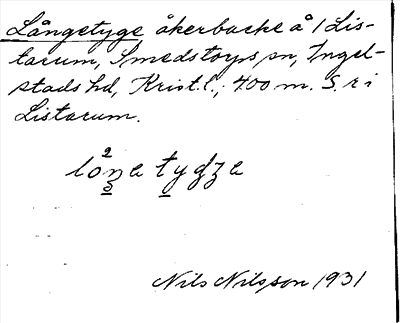 Långetyge åkerbacke å 1 Lis-
tarum, Smedstorps sn, Ingel-
stads hd, Krist. l., 400 m. S. r i
Listarum.
2
loŋa tydza
3
Nils Nilsson 1931